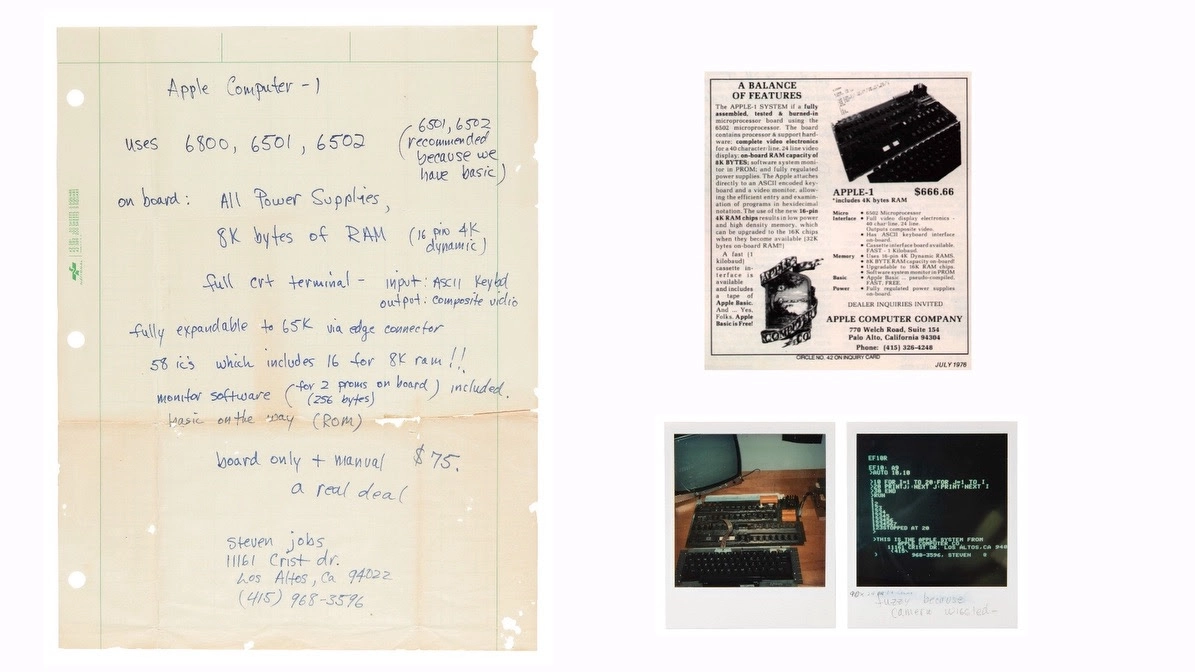 Apple Computer - 1
uses 6800, 6501, 6502
(6501, 6502
recommended
because we
have basic)
on board: All Power Supplies,
8K bytes of RAM (16 pin 4K
dynamic)
full crt terminal - input: ASCII Keybd
output: composite vidio
fully expandable to 65K via edge connector
58 ic's which includes 16 for 8K ram!!
monitor software (for 2 proms on board) included.
(256 bytes)
basic on the way (ROM)
board only + manual $75.
a real deal
steven jobs
11161 Crist dr.
Los Altos, Ca 94022
(415) 968-3596
A BALANCE
OF FEATURES
The APPLE-1 SYSTEM if a fully
assembled, tested & burned-in
microprocessor board using the
6502 microprocessor. The board
contains processor & support hard-
ware; complete video electronics
for a 40 character line, 24 line video
display; on-board RAM capacity of
8K BYTES; software system moni-
tor in PROM; and fully regulated
power supplies. The Apple attaches
directly to an ASCII encoded key-
board and a video monitor, allow-
ing the efficient entry and examina-
tion of programs in hexidecimal
notation. The use of the new 16-pin
4K RAM chips results in low power
and high density memory, which
can be upgraded to the 16K chips
when they become available [32K
bytes on-board RAM!!]
A fast (1
kilobaud)
cassette in-
terface is
available
and includes
a tape of
Apple Basic.
And ... Yes,
Folks, Apple
Basic is Free!
APPLE-1 $666.66
*includes 4K bytes RAM
Micro • 6502 Microprocessor
Interface • Full video display electronics -
40 char line, 24 line.
Outputs composite video.
• Has ASCII keyboard interface
on-board.
• Cassette interface board available.
FAST - 1 Kilobaud.
Memory • Uses 16-pin 4K Dynamic RAMS.
• 8K BYTE RAM capacity on-board
• Upgradable to 16K RAM chips.
• Software system monitor in PROM
Basic • Apple Basic ... pseudo-compiled,
FAST, FREE.
Power • Fully regulated power supplies
on-board.
DEALER INQUIRIES INVITED
APPLE COMPUTER COMPANY
770 Welch Road, Suite 154
Palo Alto, California 94304
Phone: (415) 326-4248
CIRCLE NO. 42 ON INQUIRY CARD
JULY 1976
EF10R
EF10: A9
>AUTO 10,10
>10 FOR I=1 TO 20:FOR J=1 TO I
>20 PRINTJ;:NEXT J:PRINT:NEXT I
>30 END
>RUN
STOPPED AT 20
>THIS IS THE APPLE SYSTEM FROM
APPLE COMPUTER CO.
11161 CRIST DR. LOS ALTOS,CA 940
(415)
968-3596, STEVEN
fuzzy because
camera wiggled-